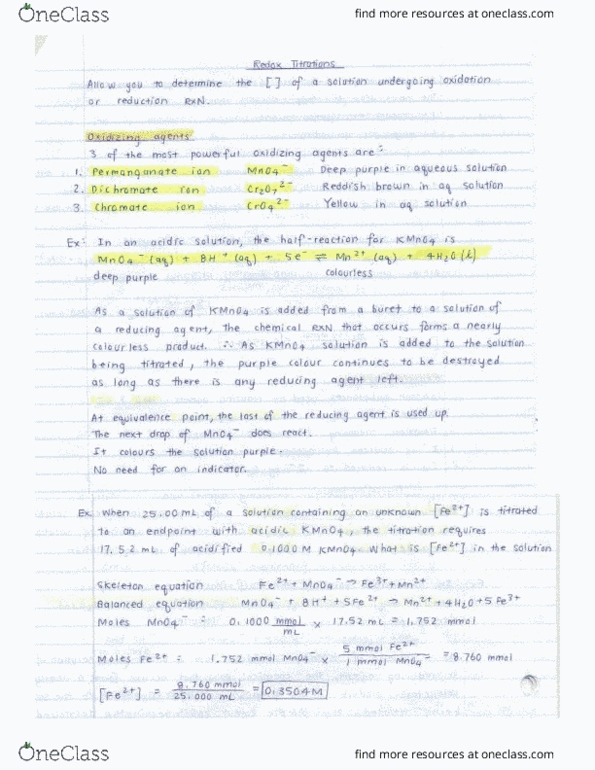 OneClass
find more resources at oneclass.com
Redox Titrations
Allow you to determine the [ ] of a solution undergoing oxidation
or reduction RXN.
Oxidizing agents
3 of the most powerful oxidizing agents are :
1. Permanganate ion MnO4⁻ Deep purple in aqueous solution
2. Dichromate ion Cr2O7²⁻ Reddish brown in aq solution
3. Chromate ion CrO4²⁻ Yellow in aq solution
Ex: In an acidic solution, the half-reaction for KMnO4 is
MnO4⁻ (aq) + 8H⁺ (aq) + 5e⁻ ⇌ Mn²⁺ (aq) + 4H2O (l)
deep purple colourless
As a solution of KMnO4 is added from a buret to a solution of
a reducing agent, the chemical RXN that occurs forms a nearly
colourless product. ∴ As KMnO4 solution is added to the solution
being titrated, the purple colour continues to be destroyed
as long as there is any reducing agent left.
At equivalence point, the last of the reducing agent is used up.
The next drop of MnO4⁻ does react.
It colours the solution purple.
No need for an indicator.
Ex. When 25.00 mL of a solution containing an unknown [Fe²⁺] is titrated
to an endpoint with acidic KMnO4, the titration requires
17.52 mL of acidified 0.1000 M KMnO4. What is [Fe²⁺] in the solution
Skeleton equation Fe²⁺ + MnO4⁻ → Fe³⁺ + Mn²⁺
Balanced equation MnO4⁻ + 8H⁺ + 5Fe²⁺ → Mn²⁺ + 4H2O + 5Fe³⁺
Moles MnO4⁻ : 0.1000 mmol/mL × 17.52 mL = 1.752 mmol
Moles Fe²⁺ : 1.752 mmol MnO4⁻ × 5 mmol Fe²⁺/1 mmol MnO4⁻ = 8.760 mmol
[Fe²⁺] = 8.760 mmol/25.000 mL = 0.3504 M
OneClass
find more resources at oneclass.com